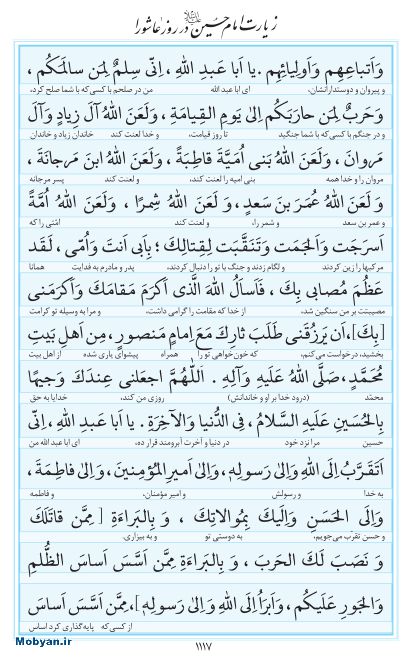 زیارت امام حسین علیه السلام در روز عاشورا
وَاَتباعِهِم وَاَولِیائِهِم . یا اَبا عَبدِ اللهِ ، اِنّی سِلمٌ لِمَن سالَمَکُم ،
و پیروان و دوستدارانشان، ای ابا عبدالله من در صلحم با کسی که با شما صلح کرد،
وَ حَربٌ لِمَن حارَبَکُم اِلیٰ یَومِ القِیامَةِ ، وَلَعَنَ اللهُ آلَ زِیادٍ وَآلَ
و در جنگم با کسی که با شما جنگید تا روز قیامت، و خدا لعنت کند خاندان زیاد و خاندان
مَروانَ ، وَلَعَنَ اللهُ بَنی اُمَیَّةَ قاطِبَةً ، وَلَعَنَ اللهُ ابنَ مَرجانَةَ ،
مروان را و خدا همه بنی امیه را لعنت کند، و لعنت کند پسر مرجانه
وَ لَعَنَ اللهُ عُمَرَ بنَ سَعدٍ ، وَ لَعَنَ اللهُ شِمرًا ، وَلَعَنَ اللهُ اُمَّةً
و عمر بن سعد و شمر را، و لعنت کند امّتی را که
اَسرَجَت وَاَلجَمَت وَتَنَقَّبَت لِقِتالِکَ ؛ بِاَبی اَنتَ وَاُمّی ، لَقَد
مرکبها را زین کردند و لگام زدند و جنگ با تو را دنبال کردند، پدر و مادرم به فدایت همانا
عَظُمَ مُصابی بِکَ ، فَاَسأَلُ اللهَ الَّذی اَکرَمَ مَقامَکَ وَاَکرَمَنی
مصیبتت بر من سنگین شد، از خدا که مقامت را گرامی داشت، و مرا به وسیله تو کرامت
[بِکَ]، اَن یَرزُقَنی طَلَبَ ثارِکَ مَعَ اِمامٍ مَنصورٍ ، مِن اَهلِ بَیتِ
بخشید، درخواست می‌کنم، که خون‌خواهی تو را همراه پیشوای یاری شده از اهل بیت
مُحَمَّدٍ، صَلَّی اللهُ عَلَیهِ وَآلِهِ . اَللّٰهُمَّ اجعَلنی عِندَکَ وَجیهًا
محمّد (درود خدا بر او و خاندانش) روزی من کند، خدایا به حق
بِالحُسَینِ عَلَیهِ السَّلامُ ، فِی الدُّنیا وَالآخِرَةِ . یا اَبا عَبدِ اللهِ ، اِنّی
حسین مرا نزد خود در دنیا و آخرت آبرومند قرار ده، ای ابا عبدالله من
اَتَقَرَّبُ اِلَی اللهِ وَاِلیٰ رَسولِهِ، وَاِلیٰ اَمیرِ المُؤمِنینَ، وَاِلیٰ فاطِمَةَ ،
به خدا و رسولش و امیر مؤمنان، و فاطمه
وَاِلَی الحَسَنِ وَاِلَیکَ بِمُوالاتِکَ ، وَ بِالبَراءَةِ [ مِمَّن قاتَلَکَ
و حسن تقرب می‌جویم، به دوستی تو و به بیزاری.
وَ نَصَبَ لَکَ الحَربَ ، وَ بِالبَراءَةِ مِمَّن اَسَّسَ اَساسَ الظُّلمِ
وَالجَورِ عَلَیکُم ، وَاَبرَأُ اِلَی اللهِ وَاِلیٰ رَسولِهِ]، مِمَّن اَسَّسَ اَساسَ
از کسی که پایه‌گذاری کرد اساس
۱۱۱۷
Mobyan.ir